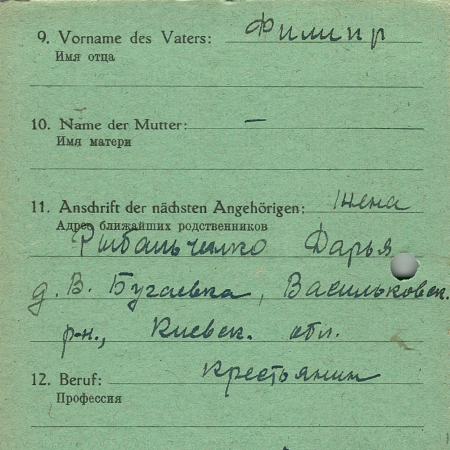 9. Vorname des Vaters: Филипр
Имя отца
10. Name der Mutter: —
Имя матери
11. Anschrift der nächsten Angehörigen: Жена
Адрес ближайших родственников
Рыбальченко Дарья
д. В. Бугаевка, Васильковск.
р-н., Киевск. обл.
12. Beruf: Крестьянин
Профессия